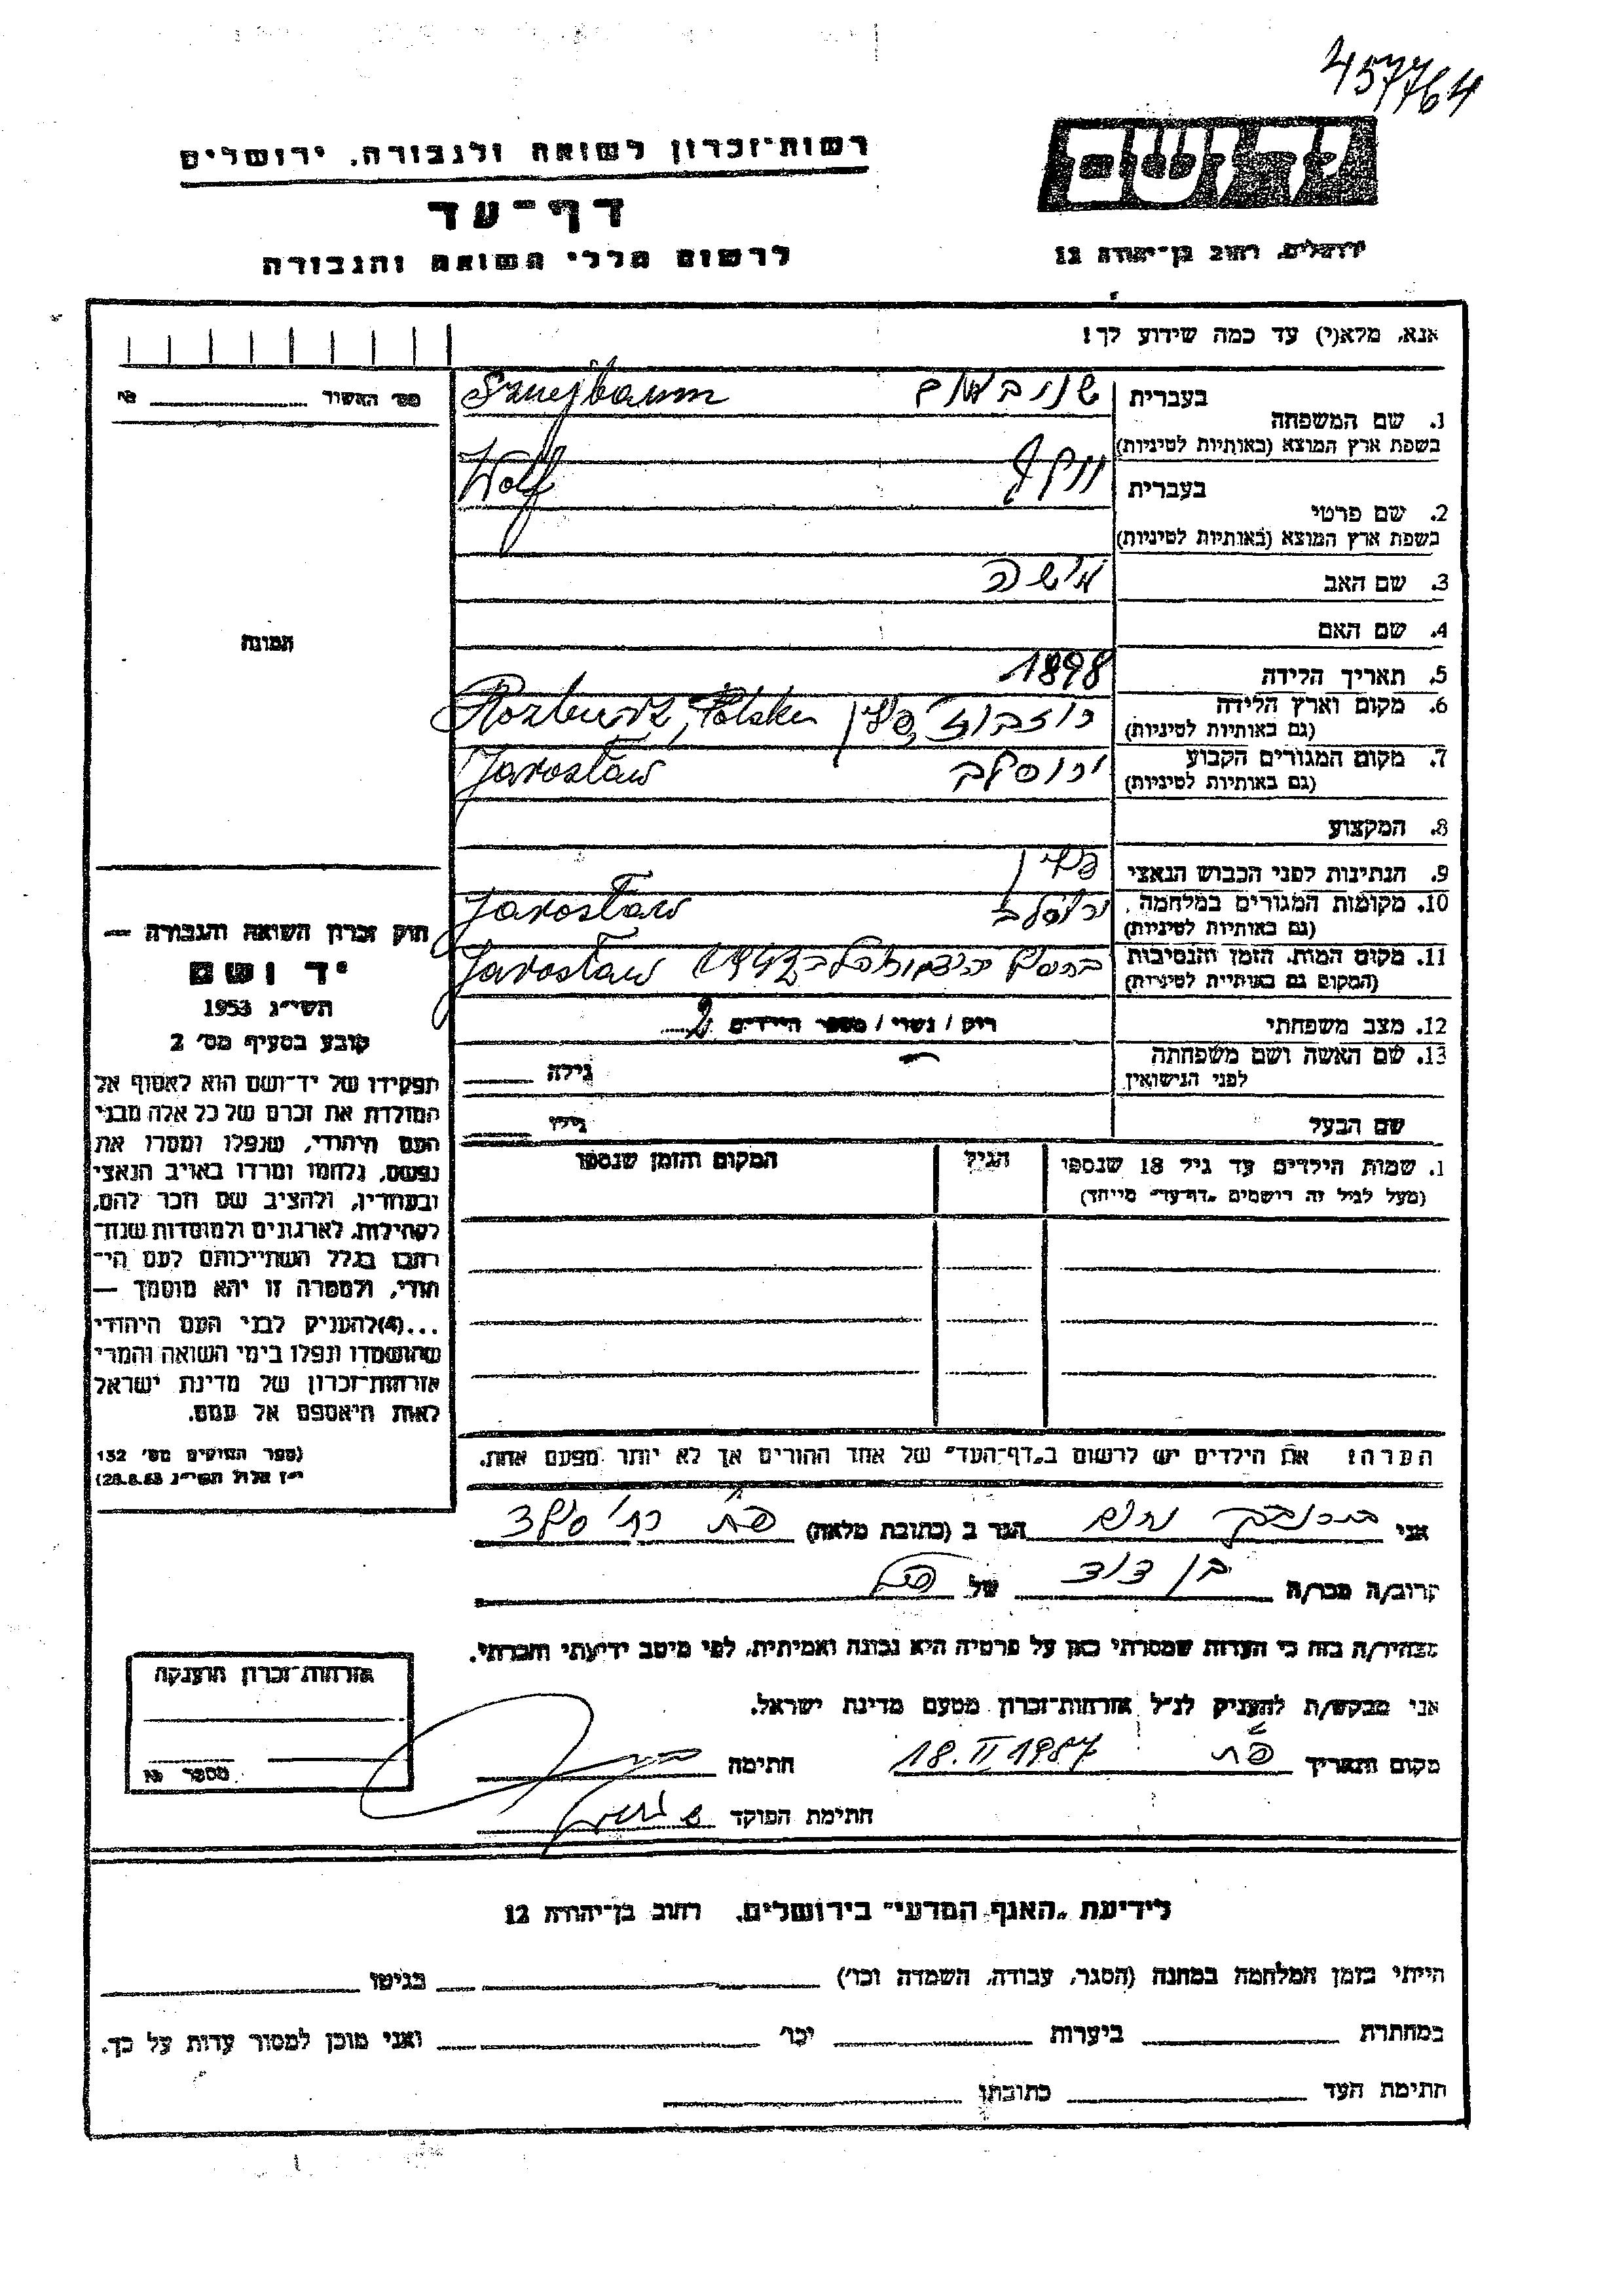 457764
רשות־זכרון לשואה ולגבורה, ירושלים
יד ושם
דף־עד
לרשום חללי השואה והגבורה
ירושלים, רחוב בן־יהודה 12
אנא, מלא(י) עד כמה שידוע לך!
מס׳ האשור № 
1. שם המשפחה בעברית
Sznejbaum
בשפת ארץ המוצא (באותיות לטיניות)
2. שם פרטי בעברית וולף
Wolf
בשפת ארץ המוצא (באותיות לטיניות)
3. שם האב
4. שם האם
התמונה
5. תאריך הלידה 1898
6. מקום וארץ הלידה פולין Polska
(גם באותיות לטיניות)
7. מקום המגורים הקבוע ירוסלב Jarosław
(גם באותיות לטיניות)
8. המקצוע
9. הנתינות לפני הכבוש הנאצי פולין
10. מקומות המגורים במלחמה ירוסלב Jarosław
(גם באותיות לטיניות)
11. מקום המות, הזמן והנסיבות 1942 Jarosław
(המקום גם באותיות לטיניות)
12. מצב משפחתי רוק / נשוי / מספר הילדים 2
13. שם האשה ושם משפחתה גילה
לפני הנישואין
שם הבעל גילו
1. שמות הילדים עד גיל 18 שנספו הגיל המקום והזמן שנספו
(מעל לגיל זה רושמים „דף־עד״ מיוחד)
הערה: את הילדים יש לרשום ב„דף־העד״ של אחד ההורים אך לא יותר מפעם אחת.
חוק זכרון השואה והגבורה —
יד ושם
תשי״ג 1953
קובע בסעיף מס׳ 2
תפקידו של יד־ושם הוא לאסוף אל
המולדת את זכרם של כל אלה מבני
העם היהודי, שנפלו ומסרו את
נפשם, נלחמו ומרדו באויב הנאצי
ובעוזריו, ולהציב שם וזכר להם,
לקהילות, לארגונים ולמוסדות שנח־
רבו בגלל השתייכותם לעם הי־
הודי, ולמטרה זו יהא מוסמך —
...(4)להעניק לבני העם היהודי
שהושמדו ונפלו בימי השואה והמרי
אזרחות־זכרון של מדינת ישראל
לאות היאספם אל עמם.
(ספר החוקים מס׳ 132
י״ז אלול תשי״ג 28.8.53)
אני הגר ב (כתובת מלאה)
קרוב/ה מכר/ה בן דוד של
מצהיר/ה בזה כי העדות שמסרתי כאן על פרטיה היא נכונה ואמיתית, לפי מיטב ידיעתי והכרתי.
אני מבקש/ת להעניק לנ״ל אזרחות־זכרון מטעם מדינת ישראל.
מקום ותאריך 18.II 1987 חתימה
חתימת הפוקד
אזרחות־זכרון הוענקה
מספר №
לידיעת „האגף המדעי״ בירושלים, רחוב בן־יהודה 12
הייתי בזמן המלחמה במחנה (הסגר, עבודה, השמדה וכו׳) בגיטו
במחתרת ביערות וכו׳ ואני מוכן למסור עדות על כך.
חתימת העד כתובתו